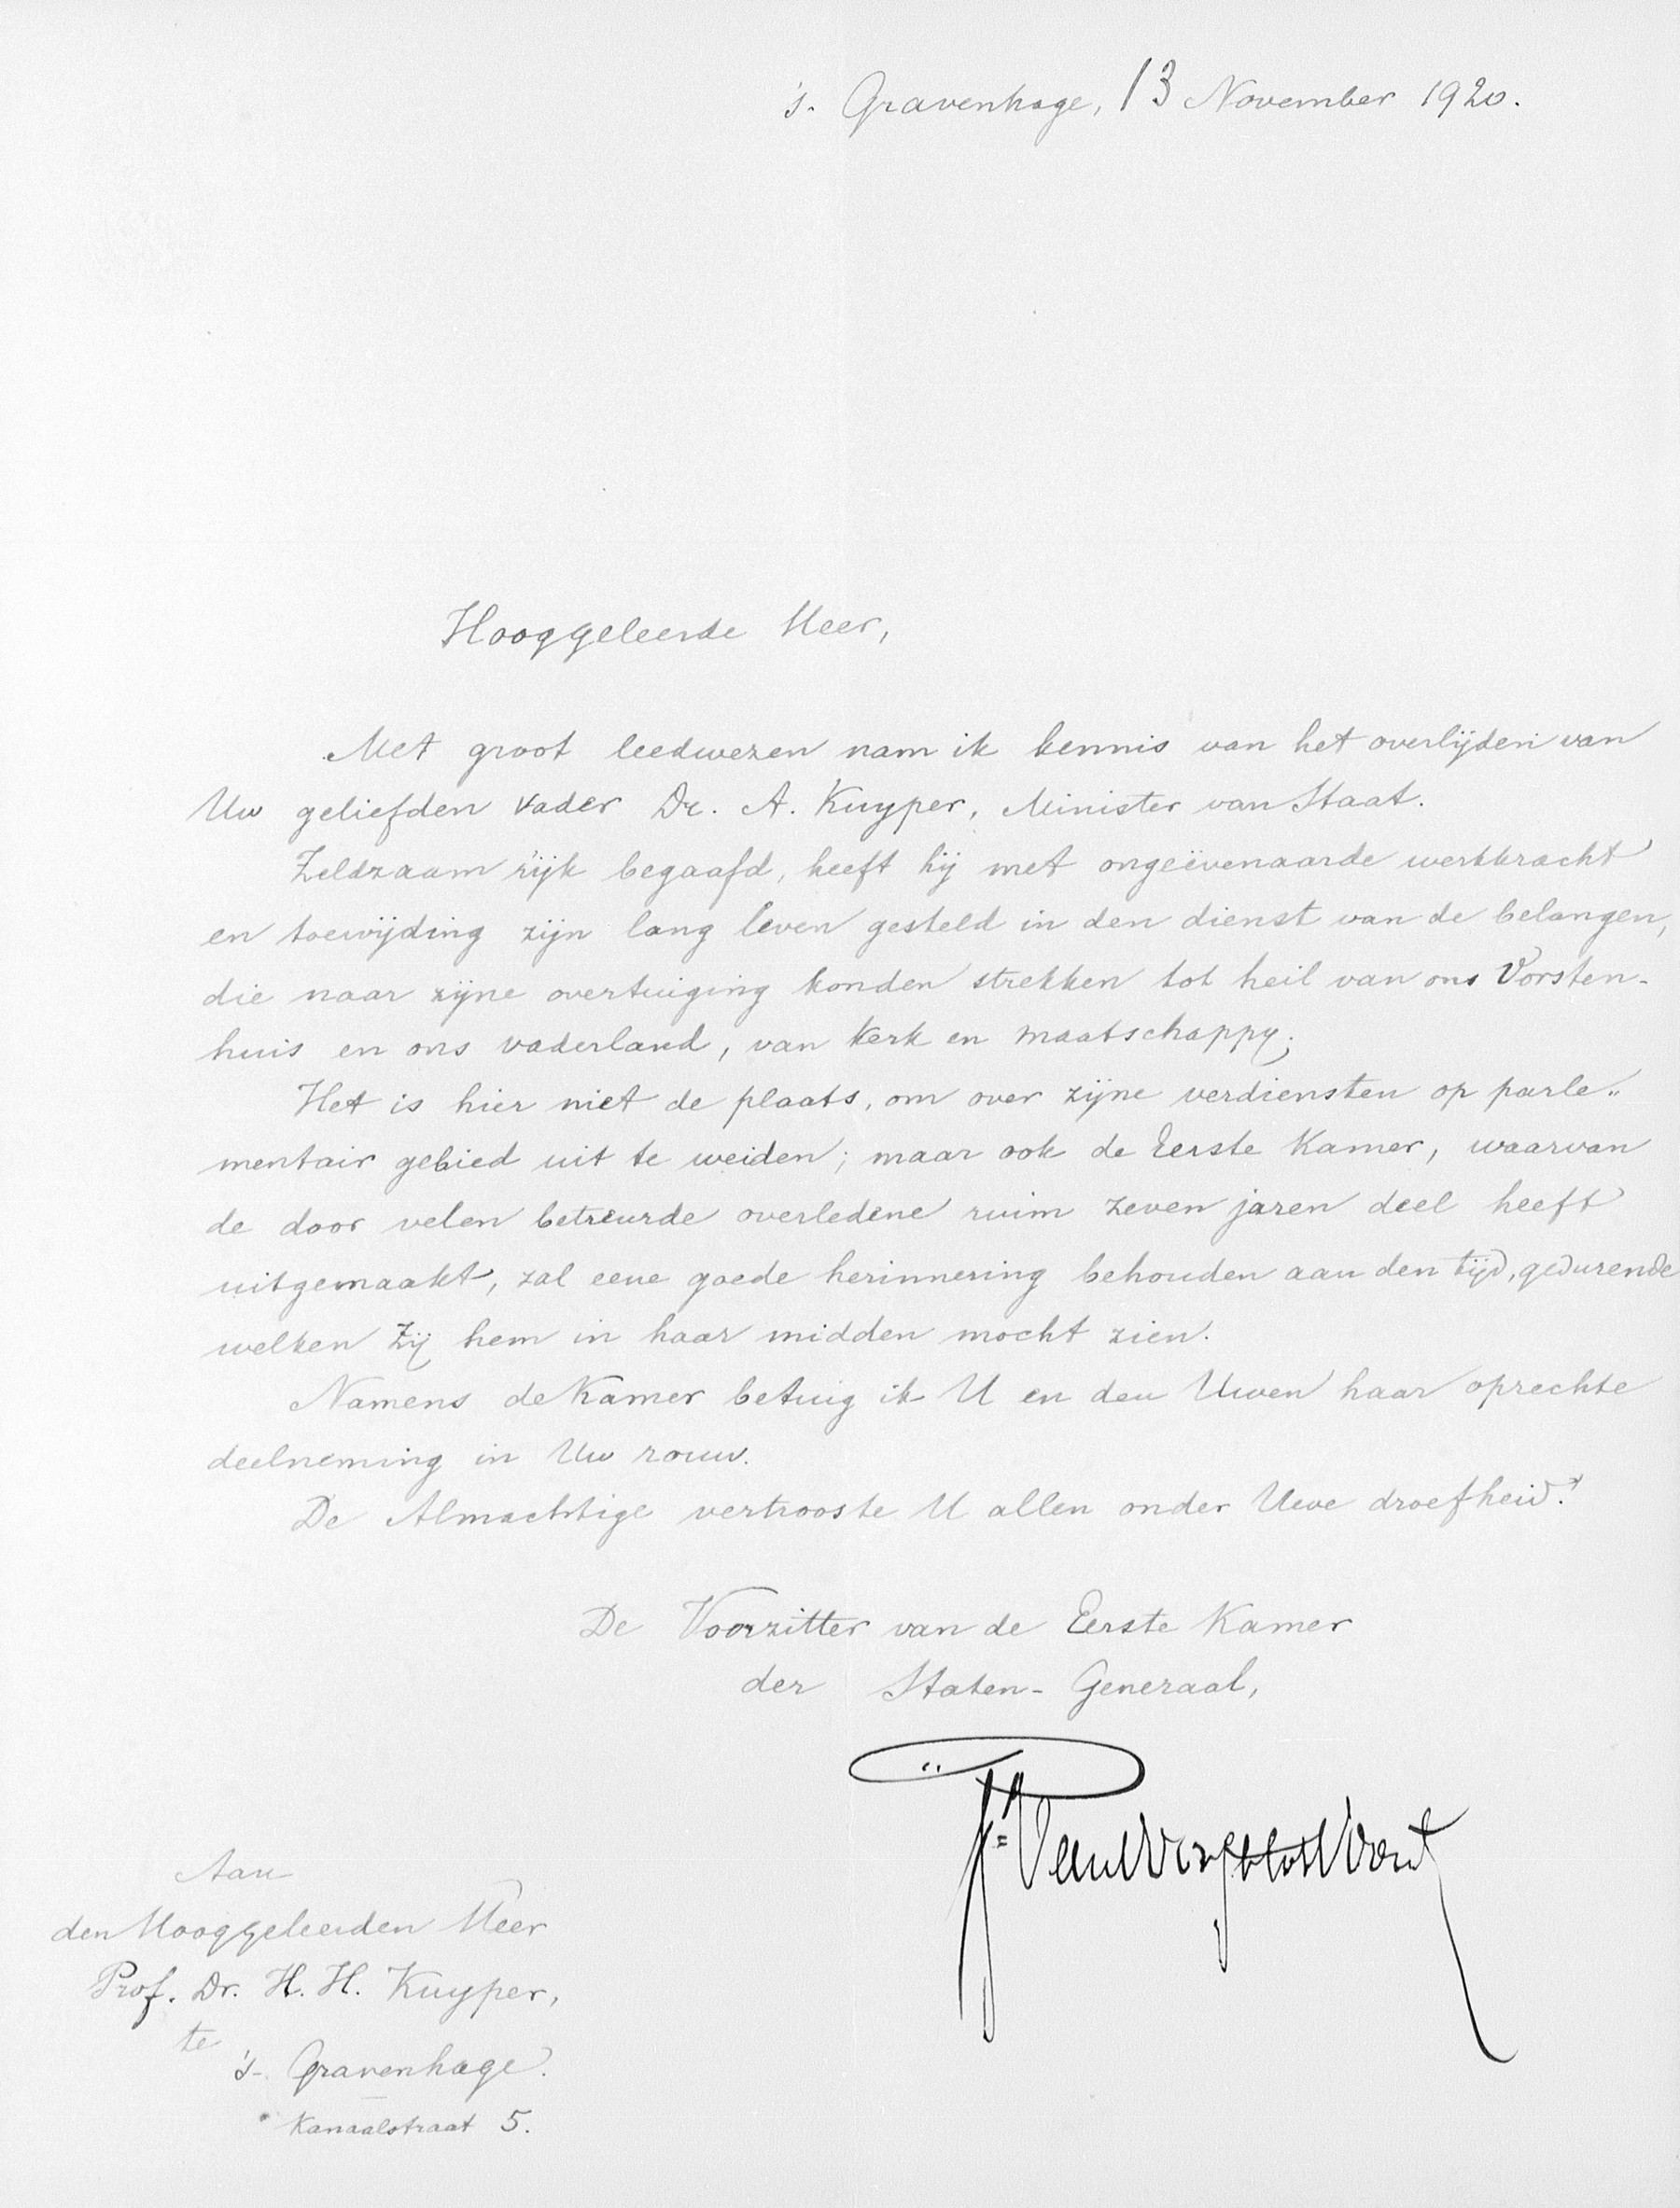 's-Gravenhage, 13 November 1920.
Hooggeleerde Heer,
Met groot leedwezen nam ik kennis van het overlijden van
Uw geliefden vader Dr. A. Kuyper, Minister van Staat.
Zeldzaam rijk begaafd, heeft hij met ongeëvenaarde werkkracht
en toewijding zijn lang leven gesteld in den dienst van de belangen,
die naar zijne overtuiging konden strekken tot heil van ons Vorsten-
huis en ons vaderland, van kerk en maatschappy.
Het is hier niet de plaats, om over zijne verdiensten op parle-
mentair gebied uit te weiden; maar ook de Eerste Kamer, waarvan
de door velen betreurde overledene ruim zeven jaren deel heeft
uitgemaakt, zal eene goede herinnering behouden aan den tijd, gedurende
welken zij hem in haar midden mocht zien.
Namens de Kamer betuig ik U en den Uwen haar oprechte
deelneming in Uw rouw.
De Almachtige vertrooste U allen onder Uwe droefheid.
De Voorzitter van de Eerste Kamer
der Staten-Generaal,
Aan
den Hooggeleerden Heer
Prof. Dr. H. H. Kuyper,
te
's-Gravenhage.
Kanaalstraat 5.